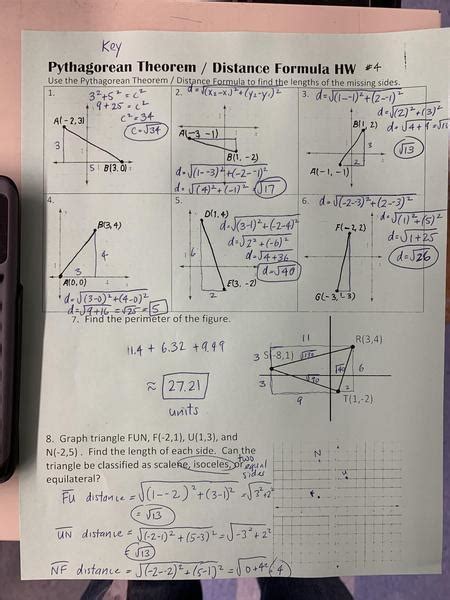 Key
Pythagorean Theorem / Distance Formula HW #4
Use the Pythagorean Theorem / Distance Formula to find the lengths of the missing sides.
1.
3²+5² = c²
9+25 = c²
c² = 34
c = √34
A(-2,3)
3
5
B(3,0)
2.
d = √(x₂-x₁)²+(y₂-y₁)²
A(-3,-1)
B(1,-2)
d = √(1--3)²+(-2--1)²
d = √(4)²+(-1)² = √17
3.
d = √(1--1)²+(2--1)²
d = √(2)²+(3)²
d = √4+9 = √13
√13
B(1,2)
3
2
A(-1,-1)
4.
B(3,4)
4
3
A(0,0)
d = √(3-0)²+(4-0)²
d = √9+16 = √25 = 5
5.
D(1,4)
d = √(3-1)²+(-2-4)²
d = √2²+(-6)²
d = √4+36
d = √40
6
2
E(3,-2)
6.
d = √(-2-3)²+(2--3)²
F(-2,2)
d = √(1)²+(5)²
d = √1+25
d = √26
G(-3,-3)
7. Find the perimeter of the figure.
11.4 + 6.32 + 9.49
≈ 27.21
units
11
R(3,4)
3
S(-8,1)
√130
√40
6
3
√90
2
T(1,-2)
9
8. Graph triangle FUN, F(-2,1), U(1,3), and
N(-2,5). Find the length of each side. Can the
triangle be classified as scalene, isoceles, or
two equal sides
equilateral?
FU distance = √(1--2)²+(3-1)² = √3²+2²
= √13
UN distance = √(-2-1)²+(5-3)² = √-3²+2²
= √13
NF distance = √(-2--2)²+(5-1)² = √0+4² = 4
N
U
F